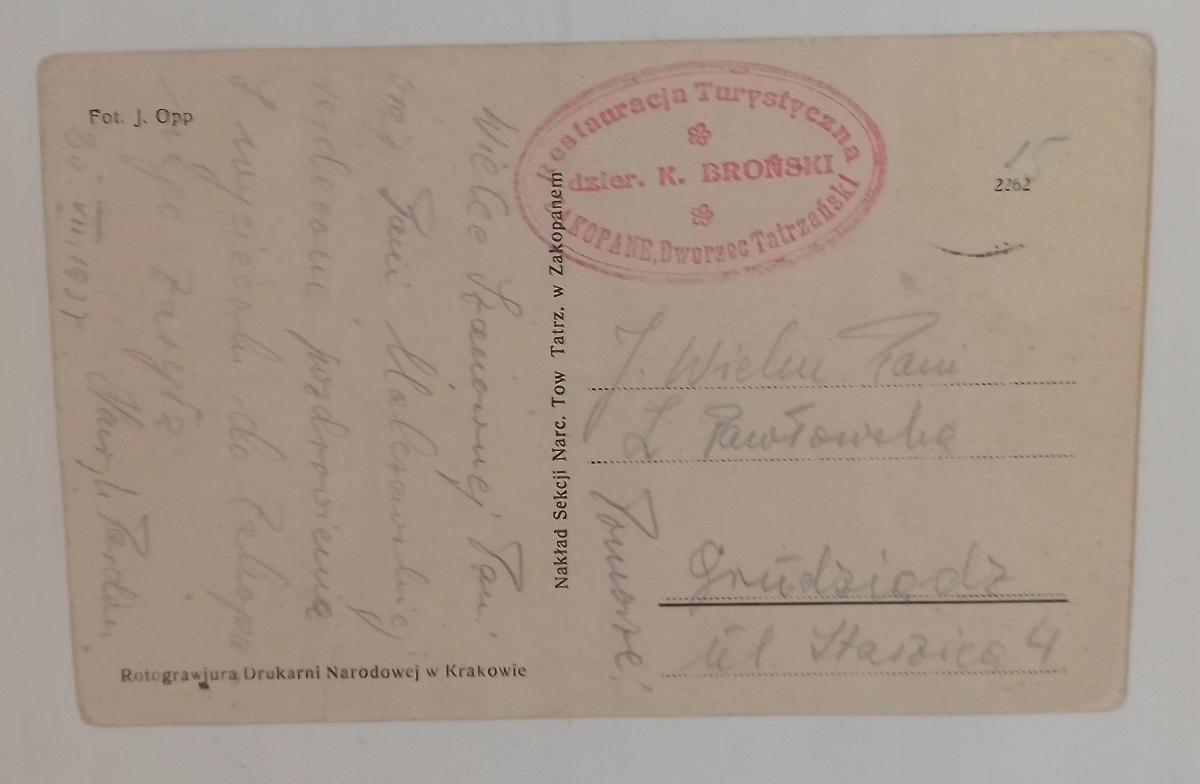 Fot. J. Opp
Wielce Szanownej Pani
oraz Pani
serdeczne pozdrowienia
z wycieczki do
30. VIII. 193
Rotograwjura Drukarni Narodowej w Krakowie
Nakład Sekcji Narc. Tow Tatrz. w Zakopanem
Restauracja Turystyczna
dzier. K. BROŃSKI
ZAKOPANE, Dworzec Tatrzański
15
2262
J. Wielm. Pani
Z. Pawłowska
Grudziądz
Pomorze!
ul. Staszica 4